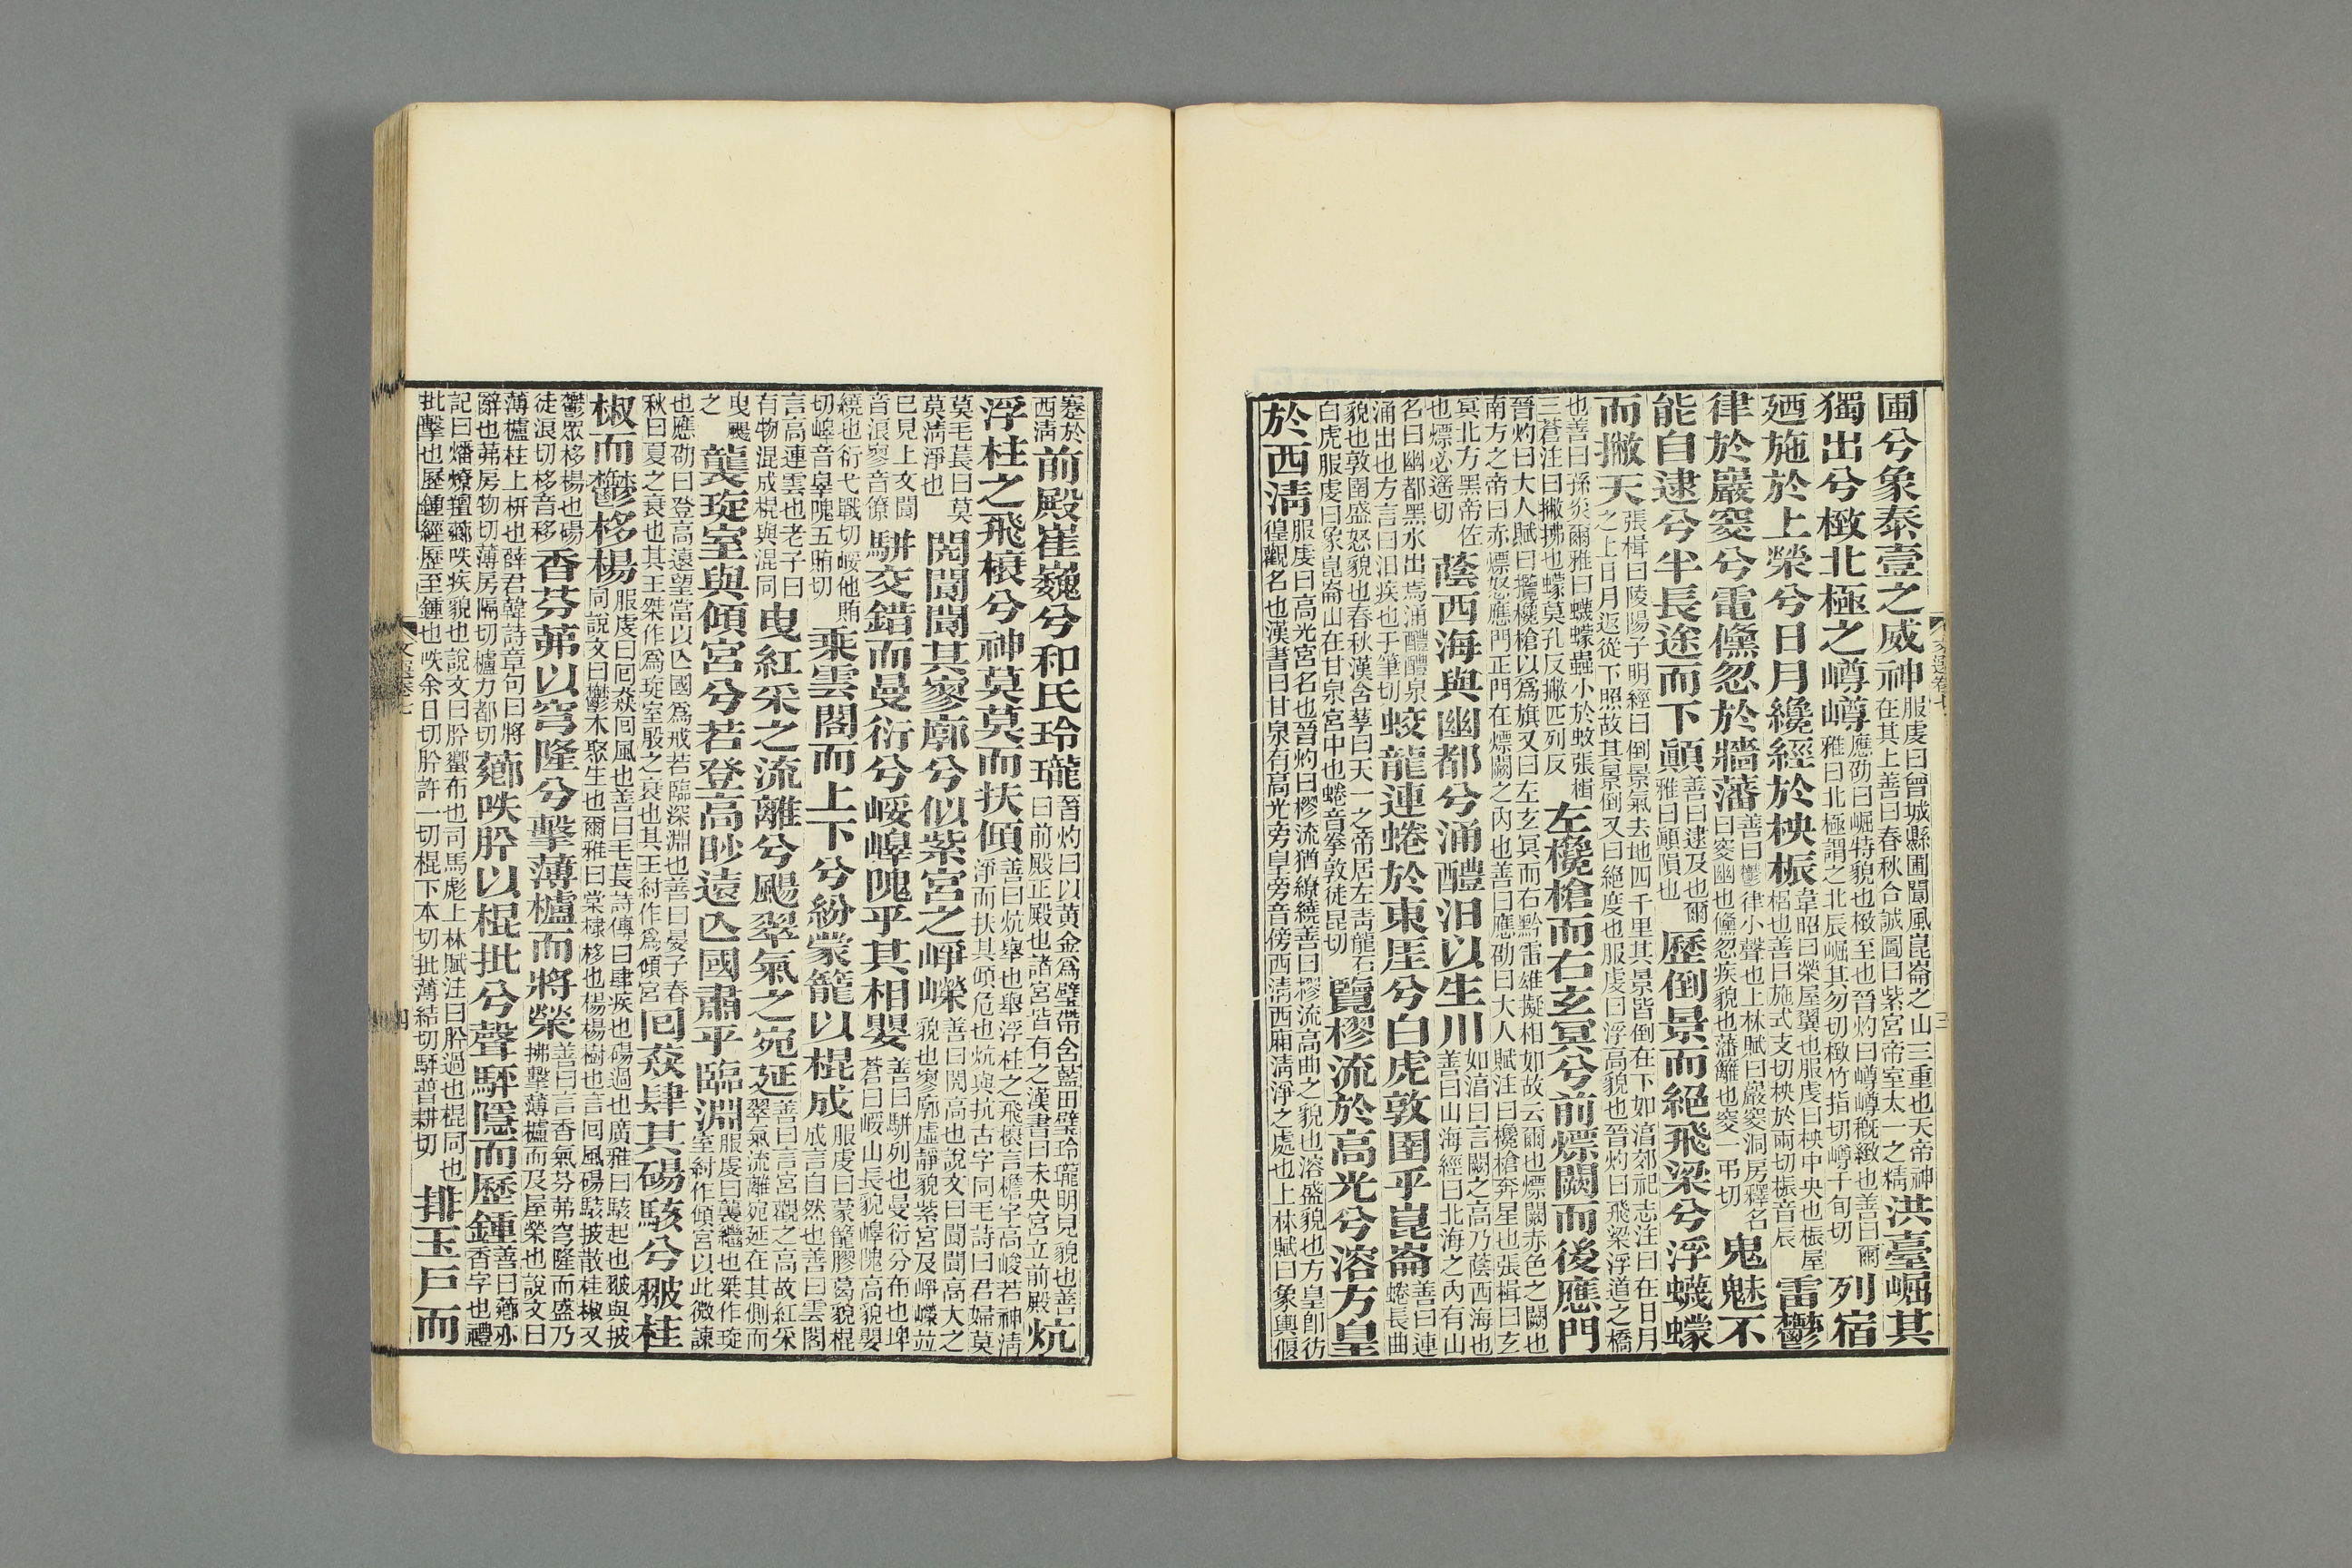 圃兮象泰壹之威神服虔曰曾城縣圃閬風崑崙之山三重也天帝神在其上善曰春秋合誠圖曰紫宮帝室太一之精洪臺崛其
獨出兮㨖北極之嶟嶟應劭曰崛特貌也㨖至也晉灼曰嶟嶟竦緻也善曰爾雅曰北極謂之北辰崛其勿切㨖竹指切嶟子旬切列宿
迺施於上榮兮日月纔經於柍桭韋昭曰榮屋翼也服虔曰柍中央也桭屋梠也善曰施式支切柍於兩切桭音辰雷鬱
律於巖窔兮電儵忽於牆藩善曰鬱律小聲也上林賦曰巖窔洞房釋名曰窔幽也儵忽疾貌也藩籬也窔一弔切鬼魅不
能自逮兮半長途而下顛善曰逮及也爾雅曰顛隕也歷倒景而絕飛梁兮浮蠛蠓
而撇天張楫曰陵陽子明經曰倒景氣去地四千里其景皆倒在下如湻郊祀志注曰在日月之上日月返從下照故其景倒又曰絕度也服虔曰浮高貌也晉灼曰飛梁浮道之橋
也善曰孫炎爾雅曰蠛蠓蟲小於蚊張楫三蒼注曰撇拂也蠓莫孔反撇匹列反左欃槍而右玄冥兮前熛闕而後應門
晉灼曰大人賦曰攬欃槍以爲旗又曰左玄冥而右黔雷雄擬相如故云爾也熛闕赤色之闕也南方之帝曰赤熛怒應門正門在熛闕之內也善曰應劭曰大人賦注曰欃槍奔星也張楫曰玄
冥北方黑帝佐也熛必遙切蔭西海與幽都兮涌醴汨以生川如湻曰言闕之高乃蔭西海也善曰山海經曰北海之內有山
名曰幽都黑水出焉涌醴醴泉涌出也方言曰汨疾也于筆切蛟龍連蜷於東厓兮白虎敦圉乎崑崙善曰連蜷長曲
貌也敦圉盛怒貌也春秋漢含孳曰天一之帝居左青龍右白虎服虔曰象崑崙山在甘泉宮中也蜷音拳敦徒昆切覽樛流於高光兮溶方皇
於西清服虔曰高光宮名也晉灼曰樛流猶繚繞善曰樛流高曲之貌也溶盛貌也方皇卽彷徨觀名也漢書曰甘泉有高光旁皇旁音傍西清西廂清淨之處也上林賦曰象輿偃
蹇於西清前殿崔巍兮和氏玲瓏晉灼曰以黃金爲璧帶含藍田璧玲瓏明見貌也善曰前殿正殿也諸宮皆有之漢書曰未央宮立前殿炕
浮柱之飛榱兮神莫莫而扶傾善曰炕舉也舉浮柱之飛榱言檐宇高峻若神清淨而扶其傾危也炕與抗古字同毛詩曰君婦莫
莫毛萇曰莫莫清淨也閌閬閬其寥廓兮似紫宮之崢嶸善曰閌高也說文曰閬閬高大之貌也寥廓虛靜貌紫宮及崢嶸竝
已見上文閬音浪寥音僚駢交錯而曼衍兮㟎㠑隗乎其相嬰善曰駢列也曼衍分布也埤蒼曰㟎山長貌㠑隗高貌嬰
繞也衍弋戰切㟎他賄切㠑音辠隗五賄切乘雲閣而上下兮紛蒙籠以棍成服虔曰蒙籠膠葛貌棍成言自然也善曰雲閣
言高連雲也老子曰有物混成棍與混同曳紅采之流離兮颺翠氣之宛延善曰言宮觀之高故紅采翠氣流離宛延在其側而
曳颺之襲琁室與傾宮兮若登高眇遠亾國肅乎臨淵服虔曰襲繼也桀作琁室紂作傾宮以此微諫
也應劭曰登高遠望當以亾國爲戒若臨深淵也善曰晏子春秋曰夏之衰也其王桀作爲琁室殷之衰也其王紂作爲傾宮回猋肆其碭駭兮翍桂
椒而鬱栘楊服虔曰回猋回風也善曰毛萇詩傳曰肆疾也碭過也廣雅曰駭起也翍與披同說文曰鬱木聚生也爾雅曰棠棣栘也楊楊樹也言回風碭駭披散桂椒又
鬱眾栘楊也碭徒浪切栘音移香芬茀以穹隆兮擊薄櫨而將榮善曰言香氣芬茀穹隆而盛乃拂擊薄櫨而及屋榮也說文曰
薄櫨柱上枅也薛君韓詩章句曰將辭也茀房物切薄房隔切櫨力都切薌呹肸以棍批兮聲駍隱而歷鍾善曰薌亦香字也禮
記曰燔燎羶薌呹疾貌也說文曰肸蠁布也司馬彪上林賦注曰肸過也棍同也批擊也歷鍾經歷至鍾也呹余日切肸許一切棍下本切批薄結切駍普耕切排玉戶而